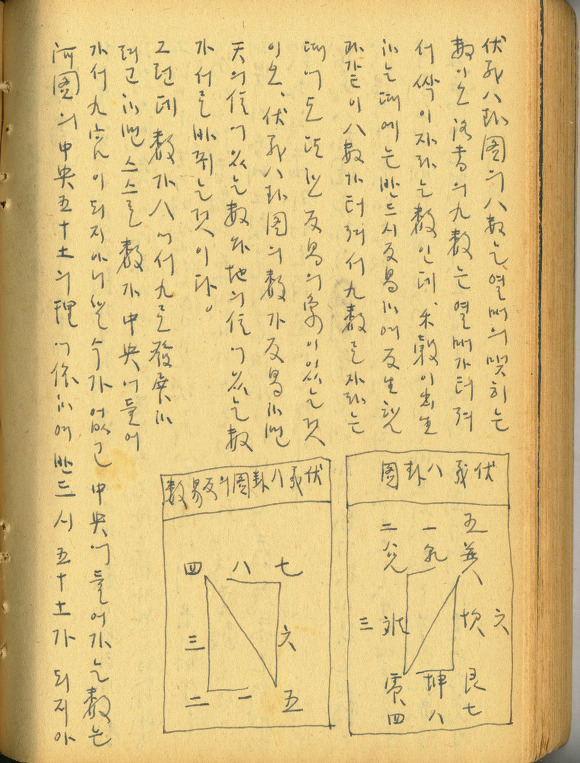 伏羲八卦圖의 八數는 열매의 맺히는
數이오 洛書의 九數는 열매가 터져
서 싹이 자라는 數인데, 禾穀이 出生
하는 때에는 반드시 反易하여 反生함
과 같이 八數가 터져서 九數로 자라는
때에도 또한 反易의 象이 있는 것
이오, 伏羲八卦圖의 數가 反易하면
天의 位에 있는 數와 地의 位에 있는 數
가 서로 바뀌는 것이다。
그런데 數가 八에서 九로 發展하
려고 하면 스스로 數가 中央에 들어
가서 九宮이 되지 아니할 수가 없고 中央에 들어가는 數는
河圖의 中央五十土의 理에 依하여 반드시 五十土가 되지 아
伏羲八卦圖
五巽 一乾 二兌
六坎 三離
七艮 八坤 四震
伏羲八卦圖의 反易數
七 八 四
六 三
五 一 二